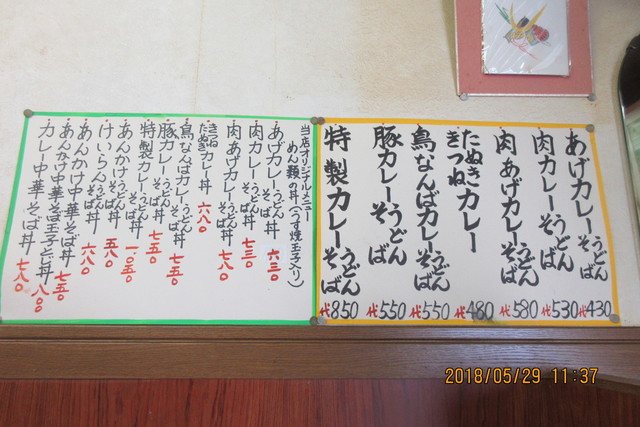 あげカレーうどんそば 代430
肉カレーうどんそば 代530
肉あげカレーうどんそば 代580
たぬききつねカレー 代480
鳥なんばカレーうどんそば 代550
豚カレーうどんそば 代550
特製カレーうどんそば 代850
当店オリジナルメニュー
めん類の丼(うす焼玉子入り)
あげカレーうどんそば丼 六三〇
肉カレーうどんそば丼 七三〇
肉あげカレーうどんそば丼 七八〇
きつねたぬきカレー丼 六八〇
鳥なんばカレーうどんそば丼 七五〇
豚カレーうどんそば丼 七五〇
特製カレーうどんそば丼 一〇五〇
あんかけうどんそば丼 五八〇
けいらんうどんそば丼 六八〇
あんかけ中華そば丼 七五〇
あんかけ中華そば玉子とじ丼 八〇〇
カレー中華そば丼 七八〇
2018/05/29 11:37